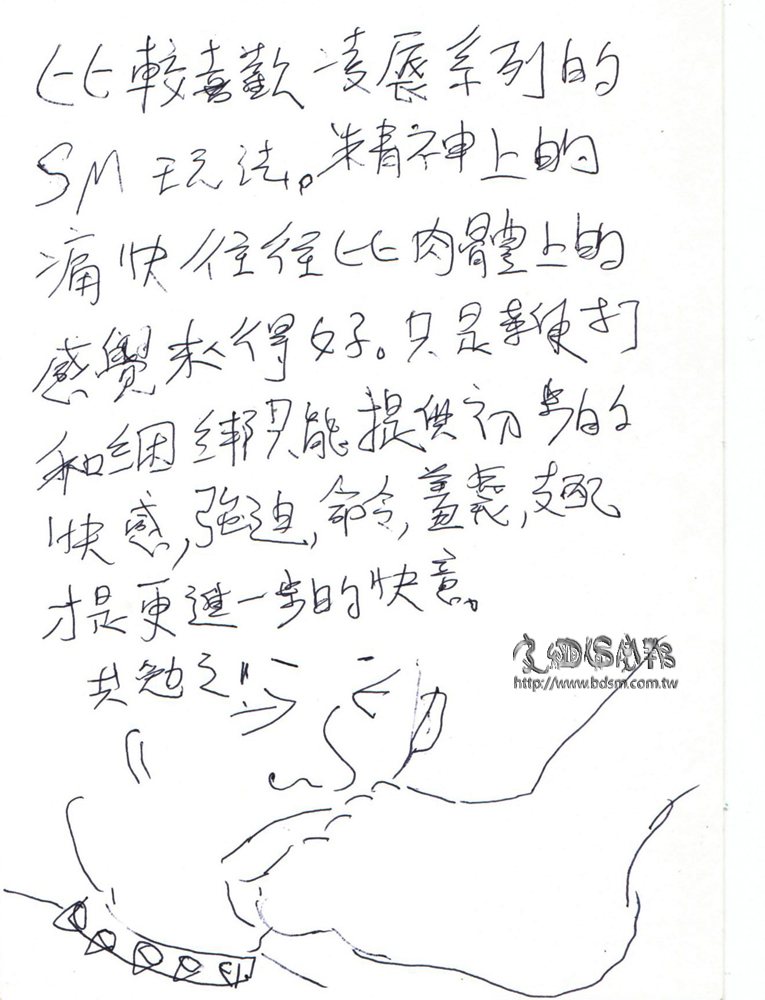 比較喜歡凌辱系列的
SM玩法。精神上的
痛快往往比肉體上的
感覺來得好。只是鞭打
和綑綁只能提供初步的
快感,強迫,命令,羞辱,支配
才是更進一步的快意。
共勉之!!
BDSM邦
http://www.bdsm.com.tw